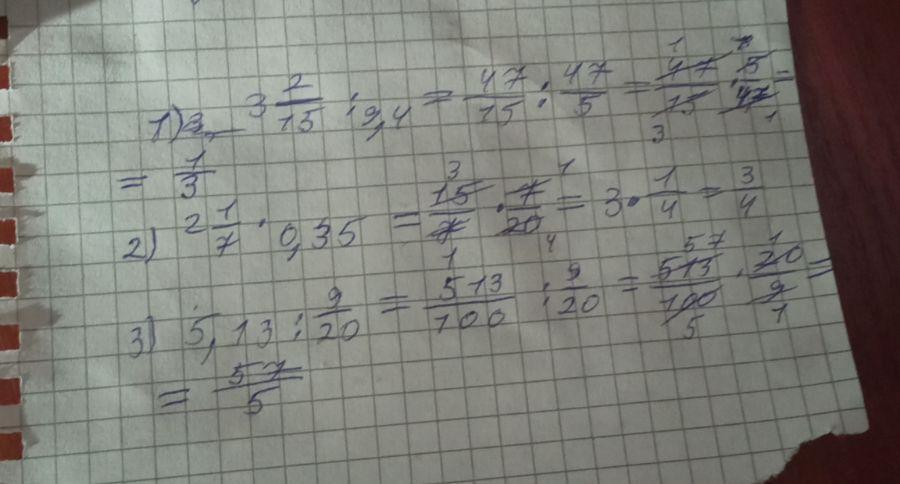 1) 3 2/15 : 9,4 = 47/15 : 47/5 = 47/15 · 5/47 =
= 1/3
2) 2 1/7 · 0,35 = 15/7 · 7/20 = 3 · 1/4 = 3/4
3) 5,13 : 9/20 = 513/100 : 9/20 = 513/100 · 20/9 =
= 57/5